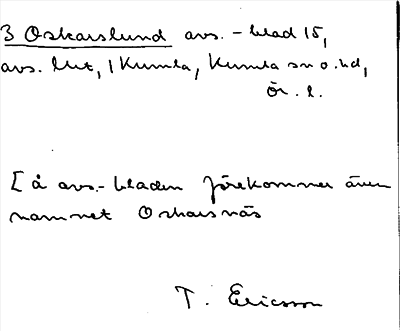 3 Oskarslund avs. - blad 15,
avs. Utt, 1 Kumla, Kumla sn o. hd,
Ör. l.
[ å avs.- bladen förekommer även
namnet Oskarsnäs
T. Ericsson